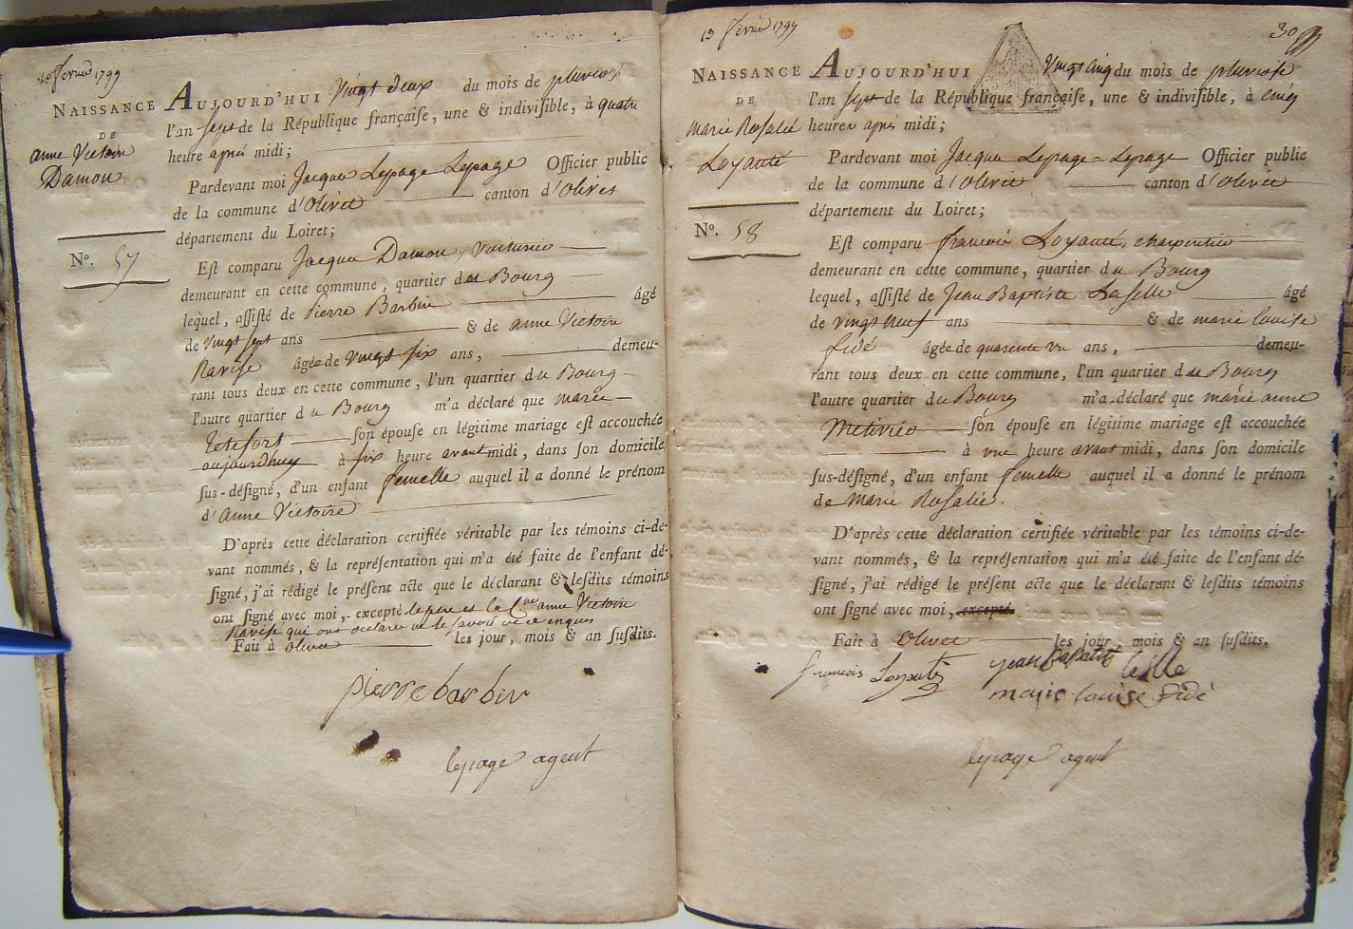 10 fevrier 1799
NAISSANCE
DE
anne Victoire
Damon
N°. 57
AUJOURD'HUI Vingt deux du mois de pluviose
l'an sept de la République françaiſe, une & indiviſible, à quatre
heure après midi;
Pardevant moi Jacques Lepage Lepage Officier public
de la commune d'Olivet canton d'Olivet
département du Loiret;
Eſt comparu Jacques Damon, voiturier
demeurant en cette commune, quartier du Bourg
lequel, aſſiſté de Pierre Barbier âgé
de vingt sept ans & de anne Victoire
Ravise âgée de vingt six ans, demeu-
rant tous deux en cette commune, l'un quartier du Bourg
l'autre quartier du Bourg m'a déclaré que marie
Tetefort ſon épouſe en légitime mariage eſt accouchée
aujourdhuy à six heure avant midi, dans ſon domicile
ſus-déſigné, d'un enfant femelle auquel il a donné le prénom
d'anne Victoire
D'après cette déclaration certifiée véritable par les témoins ci-de-
vant nommés, & la repréſentation qui m'a été faite de l'enfant dé-
ſigné, j'ai rédigé le préſent acte que le déclarant & leſdits témoins
ont ſigné avec moi, excepté le pere et la C.ne anne Victoire
Ravise qui ont declaré ne le savoir de ce enquis
Fait à Olivet les jour, mois & an ſuſdits.
pierre barbier
lepage agent
13 fevrier 1799
30
NAISSANCE
DE
Marie Rosalie
Loyauté
N°. 58
AUJOURD'HUI Vingt cinq du mois de pluviose
l'an sept de la République françaiſe, une & indiviſible, à cinq
heures après midi;
Pardevant moi Jacques Lepage Lepage Officier public
de la commune d'Olivet canton d'Olivet
département du Loiret;
Eſt comparu francois Loyauté, charpentier
demeurant en cette commune, quartier du Bourg
lequel, aſſiſté de Jean Baptiste Laselle âgé
de vingt neuf ans & de marie louise
fidé âgée de quarente un ans, demeu-
rant tous deux en cette commune, l'un quartier du Bourg
l'autre quartier du Bourg m'a déclaré que marie anne
Metivier ſon épouſe en légitime mariage eſt accouchée
à une heure avant midi, dans ſon domicile
ſus-déſigné, d'un enfant femelle auquel il a donné le prénom
de Marie Rosalie.
D'après cette déclaration certifiée véritable par les témoins ci-de-
vant nommés, & la repréſentation qui m'a été faite de l'enfant dé-
ſigné, j'ai rédigé le préſent acte que le déclarant & leſdits témoins
ont ſigné avec moi, excepté
Fait à Olivet les jour, mois & an ſuſdits.
francois Loyauté jean baptiste
marie louise fidé
lepage agent